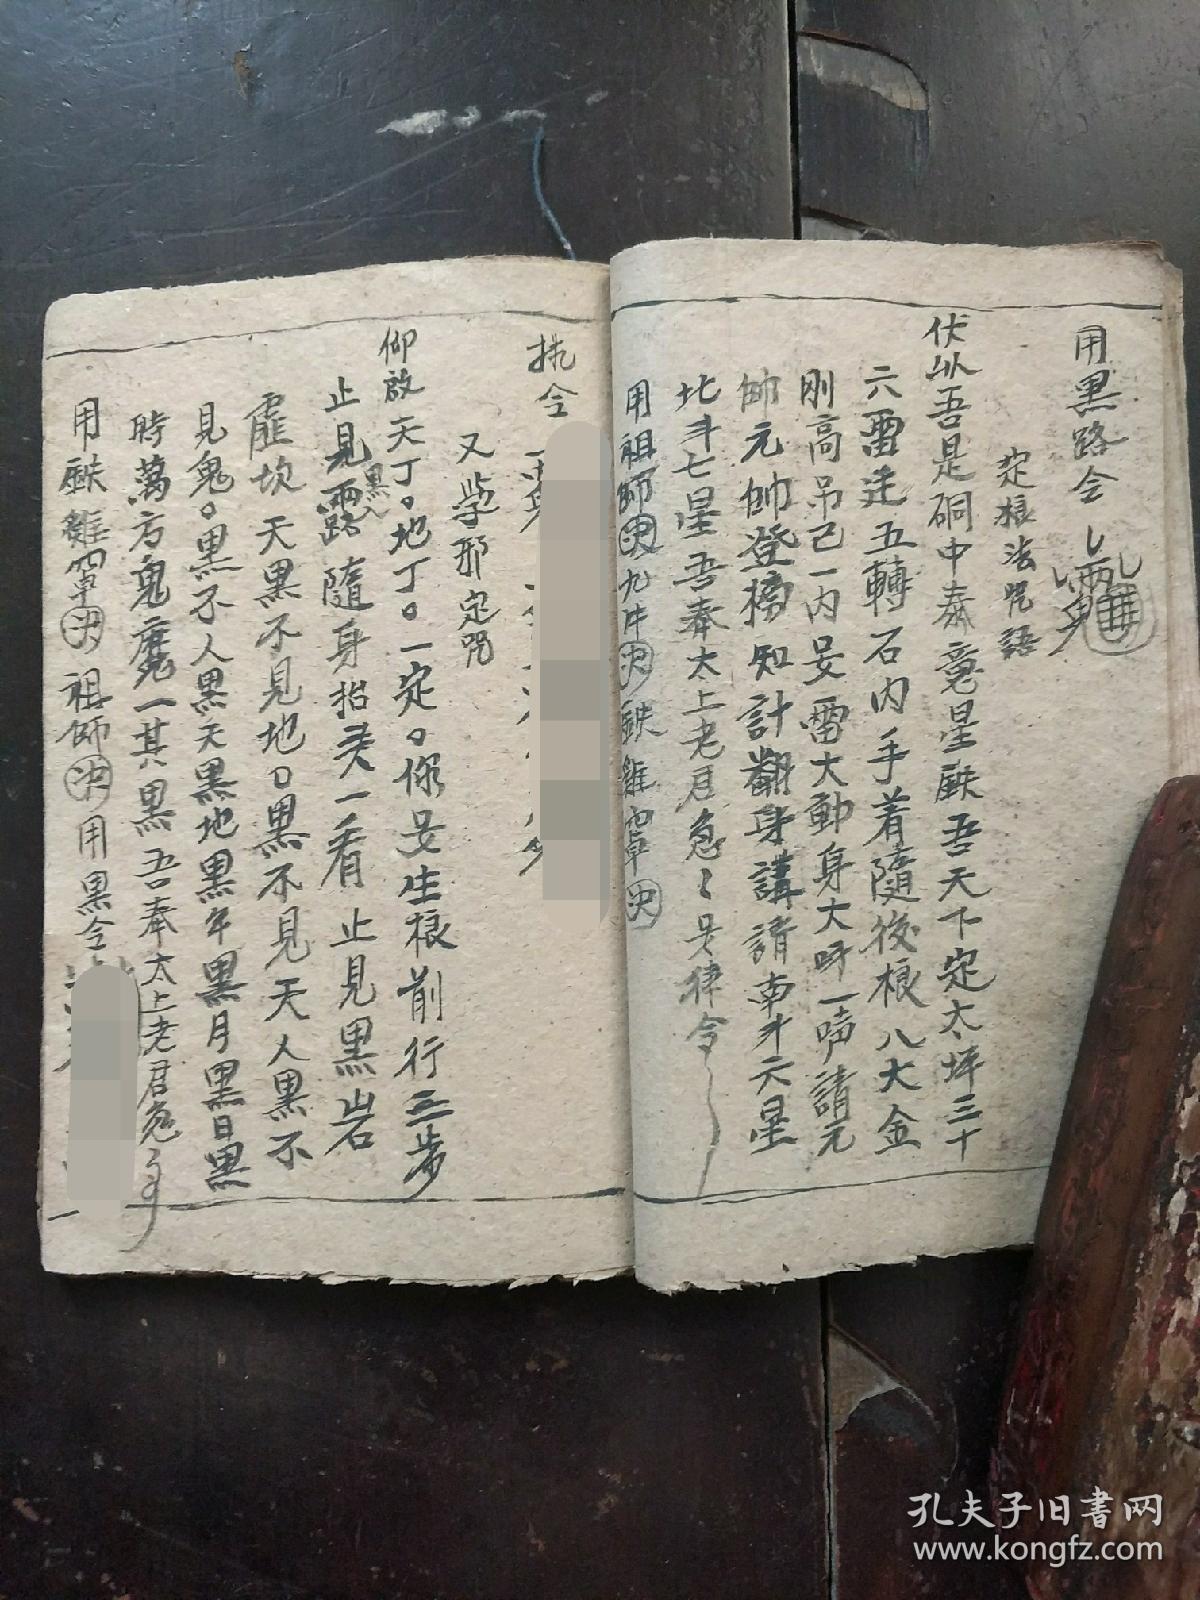 用黑路令
定根法咒語
伏以吾是硐中泰竟星鉄吾天下定太坪三十
六雷走五轉石内手着隨後根八大金
刚高吊己一内妟雷大動身大呀一嗁請元
帥元帥登榜知計翻身講請南斗六星
北斗七星吾奉太上老君急〻是律令
用祖師决九牛决鉄雞罩决
执令
又學邪定咒
仰啟天丁。地丁。一定。你妟生根前行三步
止見兩路黑人隨身抬天一看止見黑岩
虛坎天黑不見地。黑不見天人黑不
見鬼。黑不人黑天黑地黑年黑月黑日黑
時萬方鬼魔一其黑吾奉太上老君急
用鉄雞罩决祖師决用黑令
孔夫子旧書网
www.kongfz.com